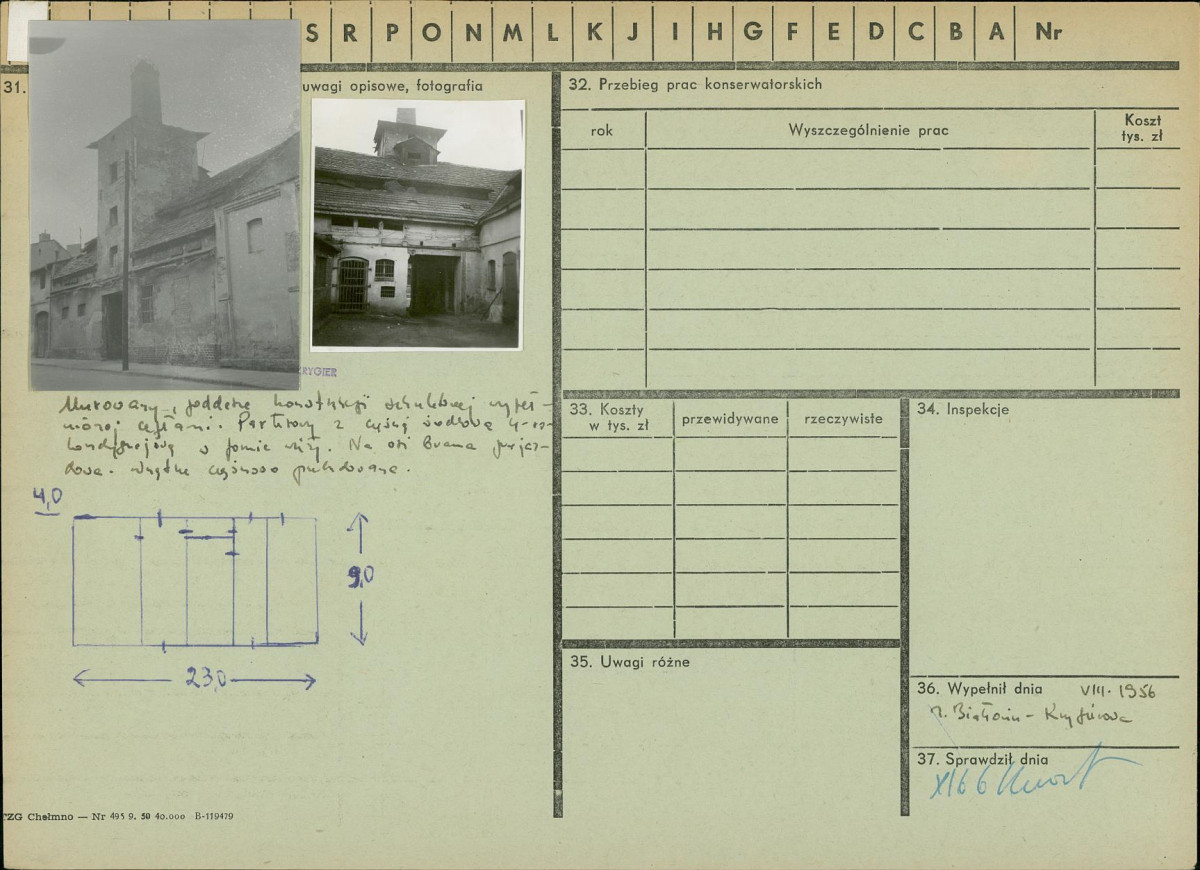 S R P O N M L K J I H G F E D C B A Nr
31. uwagi opisowe, fotografia
RYGIER
Murowany, poddasze konstrukcji szkieletowej wypeł-
nionej cegłami. Parterowy z częścią środkową 4-ro
kondygnacjową w formie wieży. Na osi brama przejaz-
dowa. Wnętrze częściowo przebudowane.
4,0
9,0
23,0
TZG Chełmno — Nr 495 9. 50 40.000 B-119479
32. Przebieg prac konserwatorskich
rok Wyszczególnienie prac Koszt
tys. zł
33. Koszty
w tys. zł przewidywane rzeczywiste
34. Inspekcje
35. Uwagi różne
36. Wypełnił dnia VIII. 1956
37. Sprawdził dnia
XI 66